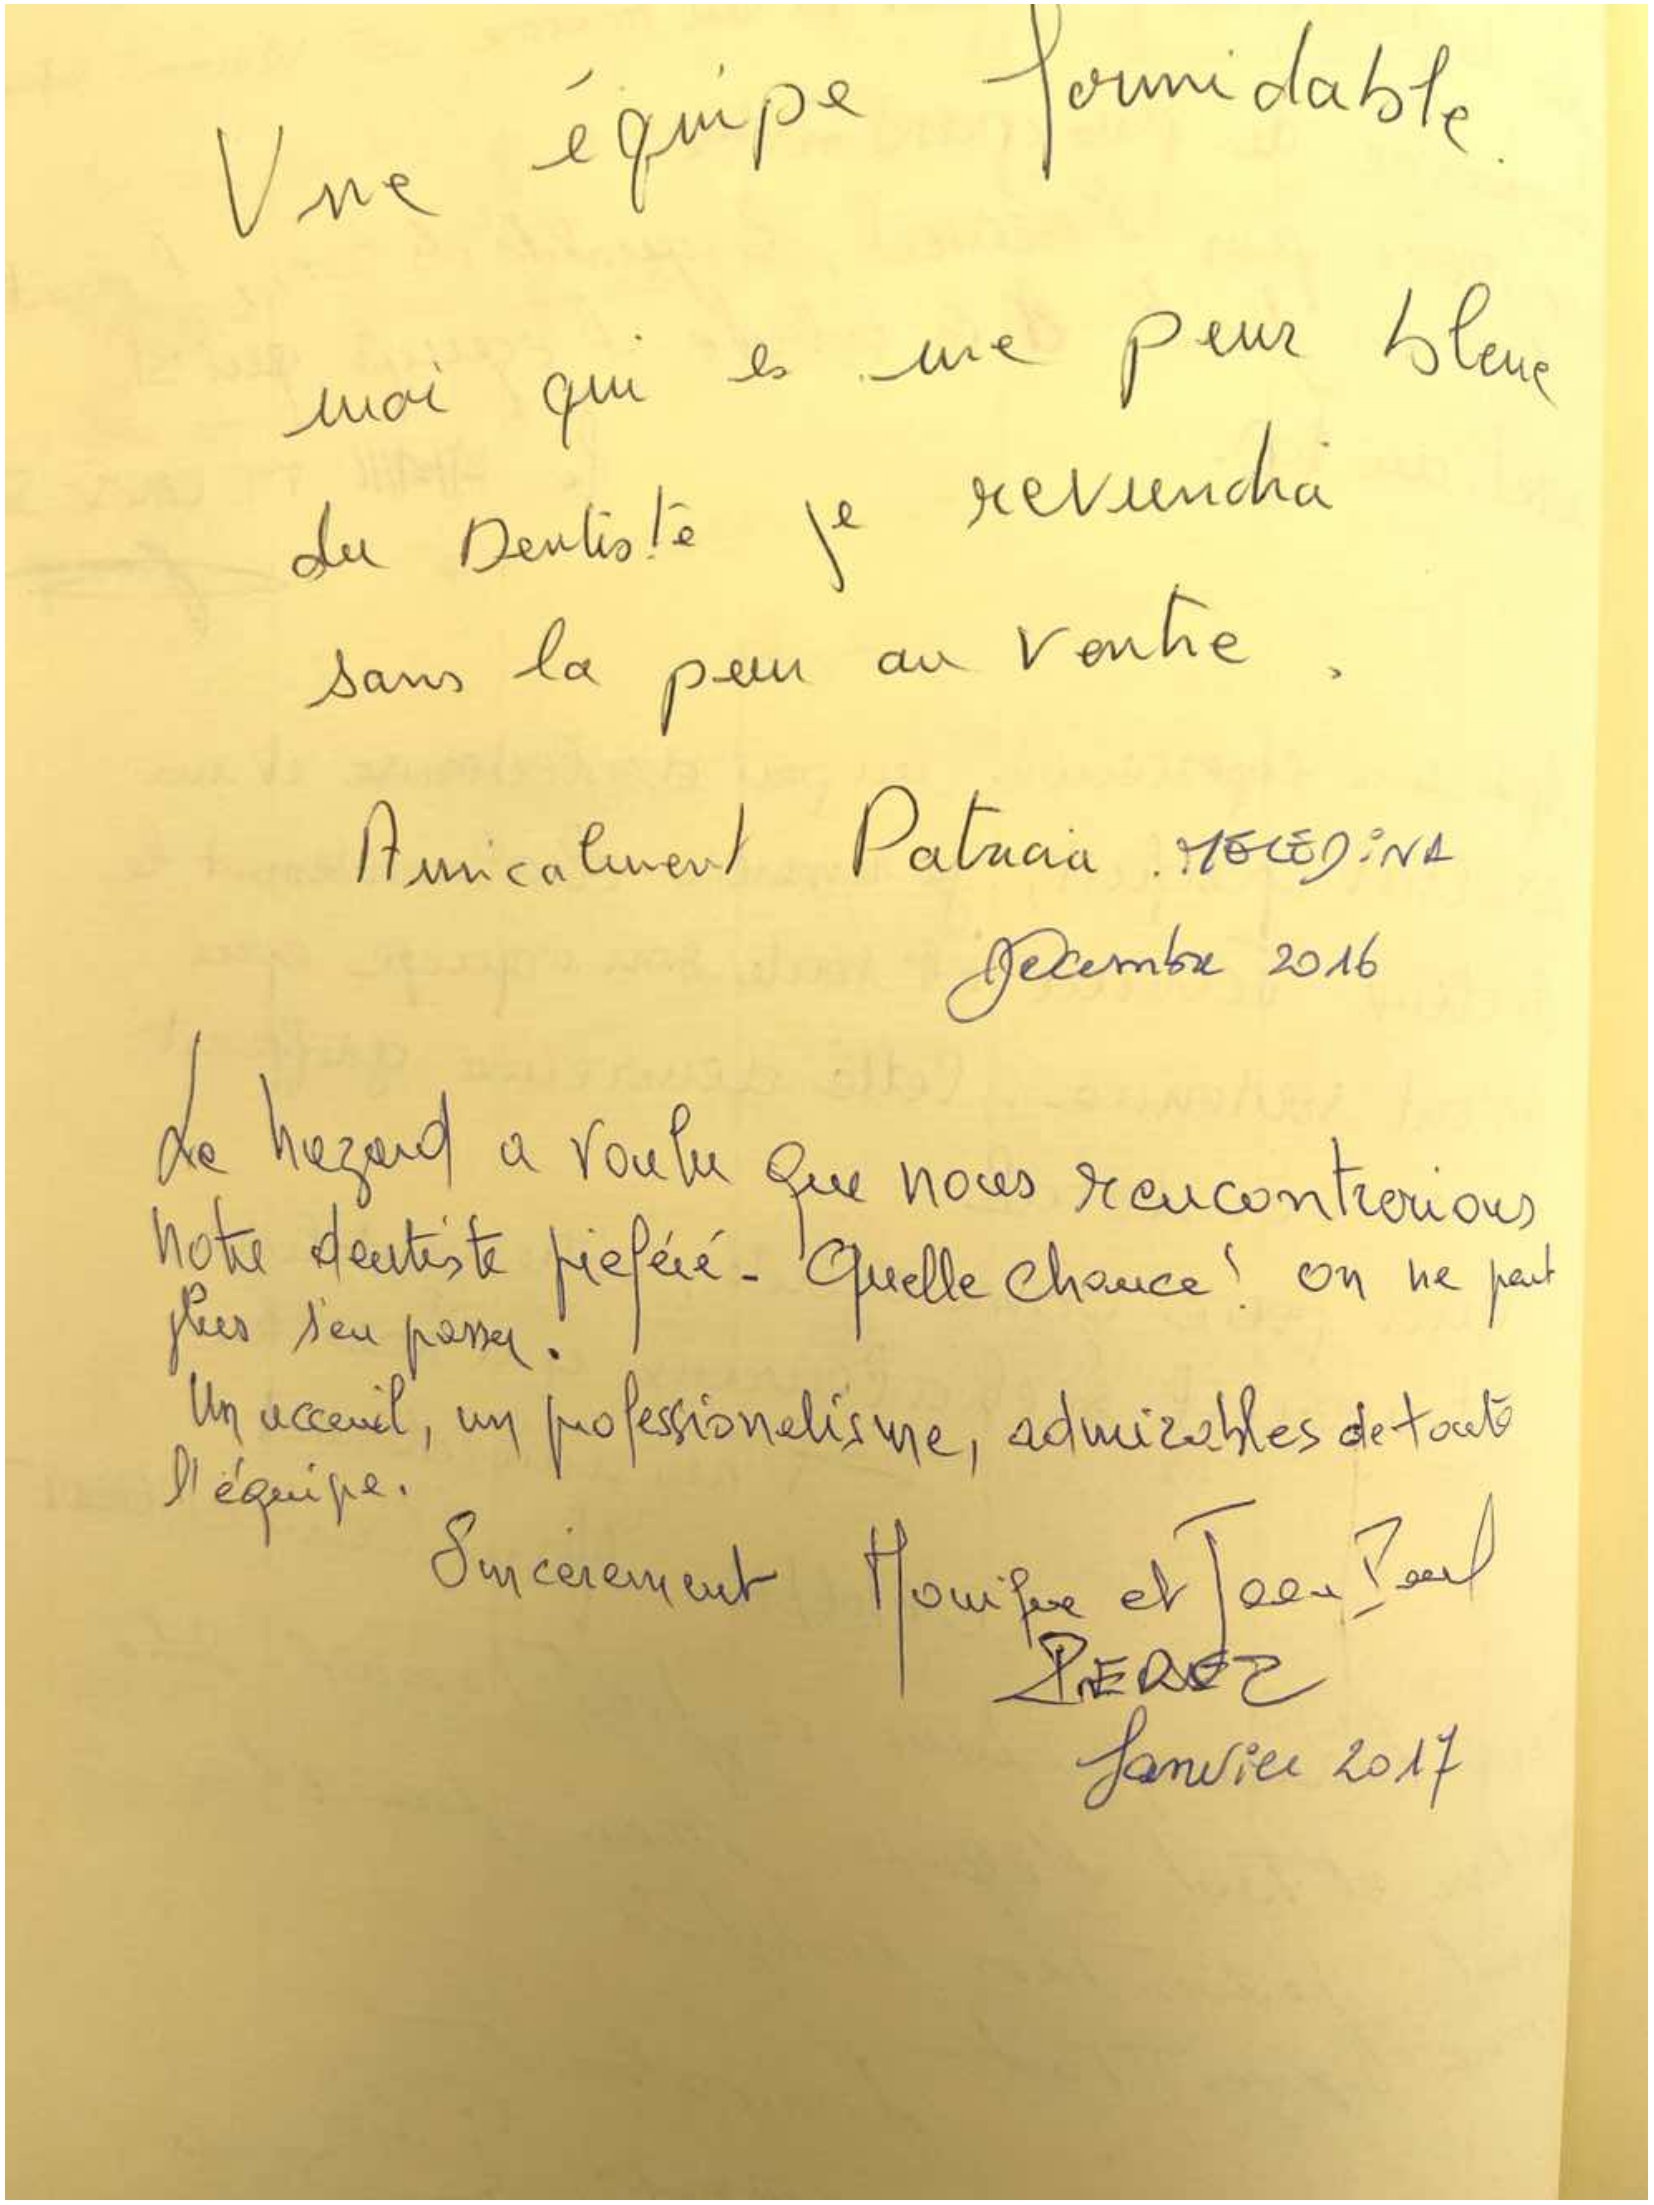 Une équipe formidable.
moi qui es une peur bleue
du Dentiste je reviendrai
sans la peur au ventre.
Amicalement Patricia MELEDINA
Décembre 2016
Le hazard a voulu que nous rencontrerions
notre dentiste préféré - Quelle chance ! on ne peut
plus s'en passer.
Un acceuil, un professionalisme, admirables de toute
l'équipe.
Sincèrement Monique et Jean Paul
PEREZ
Janvier 2017